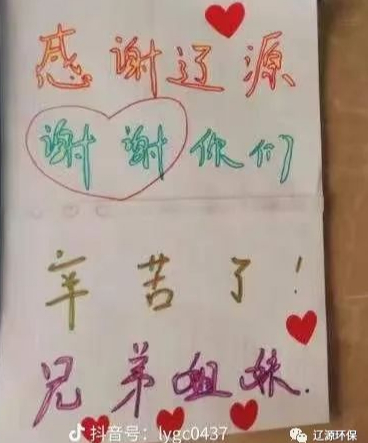 感谢辽源
谢谢你们
辛苦了!
兄弟姐妹.
抖音号: lygc0437
辽源环保